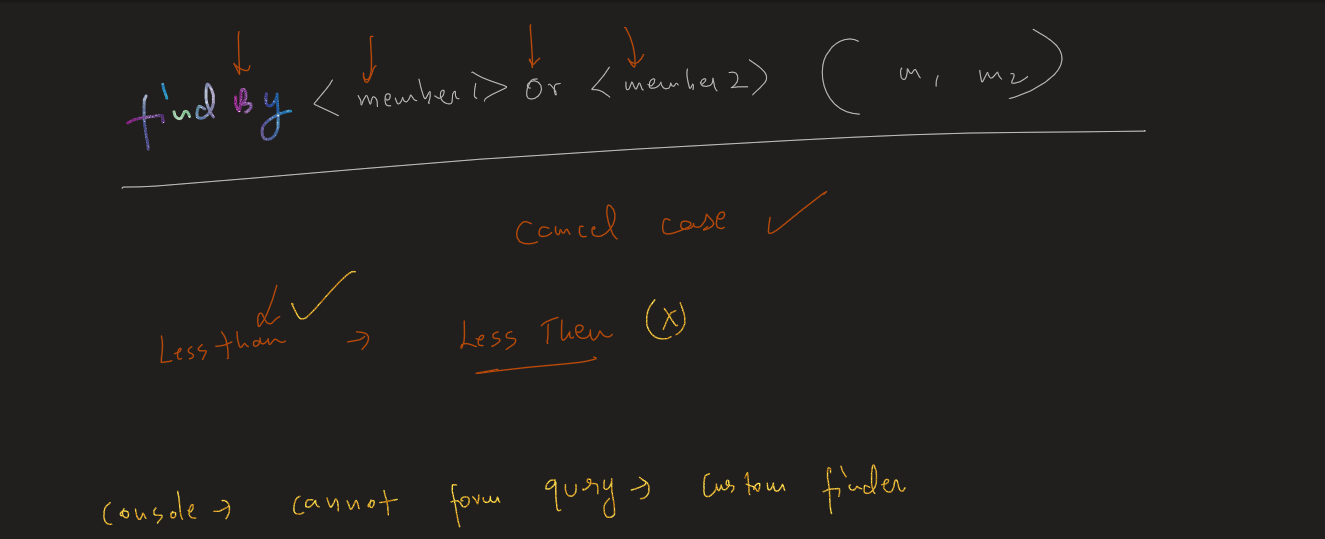 find By < member 1> Or < member 2> ( m1, m2)
Camcel case ✓
Less than ✓ → Less Then (X)
Console → cannot form query → Custom finder